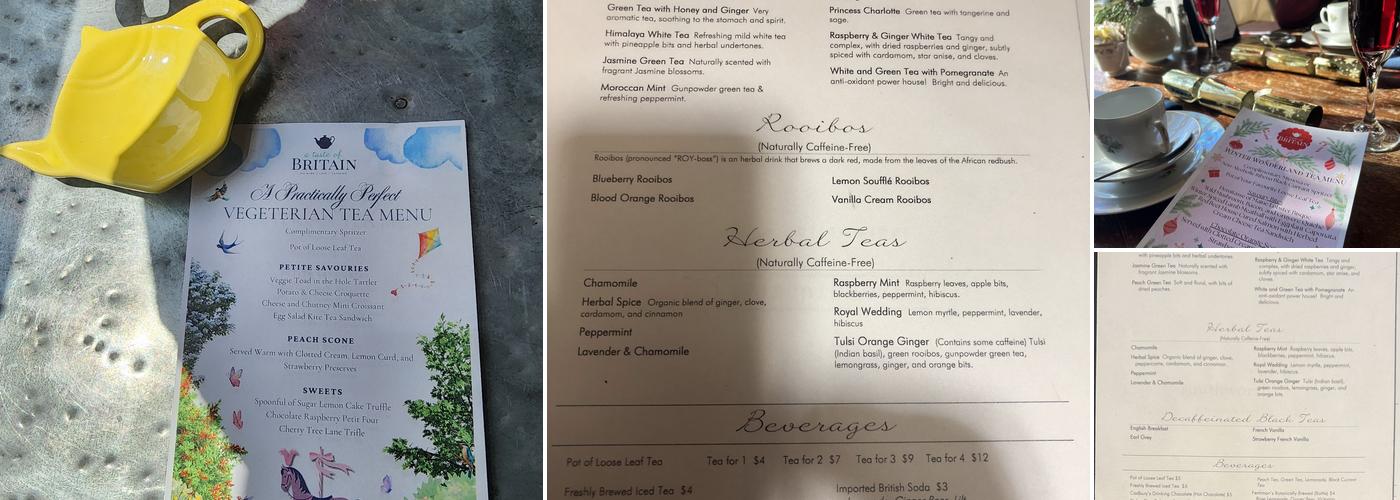 a taste of
BRITAIN
A Practically Perfect
VEGETERIAN TEA MENU
Complimentary Spritzer
Pot of Loose Leaf Tea
PETITE SAVOURIES
Veggie Toad in the Hole Tartlet
Potato & Cheese Croquette
Cheese and Chutney Mini Croissant
Egg Salad Kite Tea Sandwich
PEACH SCONE
Served Warm with Clotted Cream, Lemon Curd, and
Strawberry Preserves
SWEETS
Spoonful of Sugar Lemon Cake Truffle
Chocolate Raspberry Petit Four
Cherry Tree Lane Trifle
Green Tea with Honey and Ginger Very
aromatic tea, soothing to the stomach and spirit.
Himalaya White Tea Refreshing mild white tea
with pineapple bits and herbal undertones.
Jasmine Green Tea Naturally scented with
fragrant Jasmine blossoms.
Moroccan Mint Gunpowder green tea &
refreshing peppermint.
Princess Charlotte Green tea with tangerine and
sage.
Raspberry & Ginger White Tea Tangy and
complex, with dried raspberries and ginger, subtly
spiced with cardamom, star anise, and cloves.
White and Green Tea with Pomegranate An
anti-oxidant power house! Bright and delicious.
Rooibos
(Naturally Caffeine-Free)
Rooibos (pronounced "ROY-boss") is an herbal drink that brews a dark red, made from the leaves of the African redbush.
Blueberry Rooibos
Blood Orange Rooibos
Lemon Soufflé Rooibos
Vanilla Cream Rooibos
Herbal Teas
(Naturally Caffeine-Free)
Chamomile
Herbal Spice Organic blend of ginger, clove,
cardamom, and cinnamon
Peppermint
Lavender & Chamomile
Raspberry Mint Raspberry leaves, apple bits,
blackberries, peppermint, hibiscus.
Royal Wedding Lemon myrtle, peppermint, lavender,
hibiscus
Tulsi Orange Ginger (Contains some caffeine) Tulsi
(Indian basil), green rooibos, gunpowder green tea,
lemongrass, ginger, and orange bits.
Beverages
Pot of Loose Leaf Tea Tea for 1 $4 Tea for 2 $7 Tea for 3 $9 Tea for 4 $12
Freshly Brewed Iced Tea $4
Imported British Soda $3
BRITAIN
WINTER WONDERLAND TEA MENU
Cream Cheese Tea Sandwich
with pineapple bits and herbal undertones
Jasmine Green Tea Naturally scented with
fragrant Jasmine blossoms.
Peach Green Tea Soft and floral, with bits of
dried peaches.
Raspberry & Ginger White Tea Tangy and
complex, with dried raspberries and ginger,
subtly spiced with cardamom, star anise, and
cloves.
White and Green Tea with Pomegranate An
anti-oxidant power house! Bright and
delicious.
Herbal Teas
(Naturally Caffeine-Free)
Chamomile
Herbal Spice Organic blend of ginger, clove,
peppercorns, cardamom, and cinnamon.
Peppermint
Lavender & Chamomile
Raspberry Mint Raspberry leaves, apple bits,
blackberries, peppermint, hibiscus.
Royal Wedding Lemon myrtle, peppermint,
lavender, hibiscus
Tulsi Orange Ginger Tulsi (Indian basil),
green rooibos, lemongrass, ginger, and
orange bits.
Decaffeinated Black Teas
English Breakfast
Earl Grey
French Vanilla
Strawberry French Vanilla
Beverages
Pot of Loose Leaf Tea $5
Freshly Brewed Iced Tea $6
Cadbury's Drinking Chocolate (Hot Chocolate) $5
Peach Tea, Green Tea, Lemonade, Black Currant
Tea
Fentiman's Botanically Brewed (Burks) $4